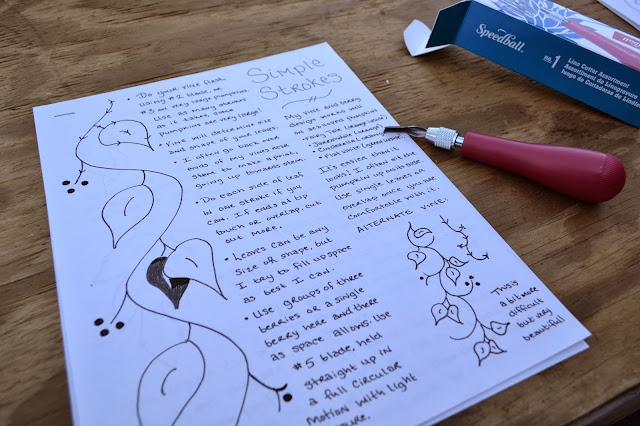 Simple
Strokes
• Do your vine first,
using #2 blade, or
#3 on very large pumpkins.
Use as many curves
as it takes, since
pumpkins are very large!
• Vine will determine size
and shape of your leaves.
• I often go back over
ends of my vines near
stem to make a point,
going up towards stem.
• Do each side of leaf
in one stroke if you
can. If ends at tip
touch or overlap, cut
out more.
• Leaves can be any
size or shape, but
I try to fill up space
as best I can.
• Use groups of three
berries or a single
berry here and there
as space allows. Use
#5 blade, held
straight up in
a full circular
motion with light
My vine and berry
design works well
on assorted pumpkins
• Fairy Tale
• Jarrahdale
• Cinderella
• Flat white
It's easier than
looks! I often set
pumpkin up on its side
Use single leaves or
overlap, once you are
comfortable with it.
ALTERNATE VINE.
This is
a bit more
difficult
but very
beautiful
Speedball
no. 1
Lino Cutter Assortment
Assortiment de Linogravure
Juego de Cortadores de Linóleo